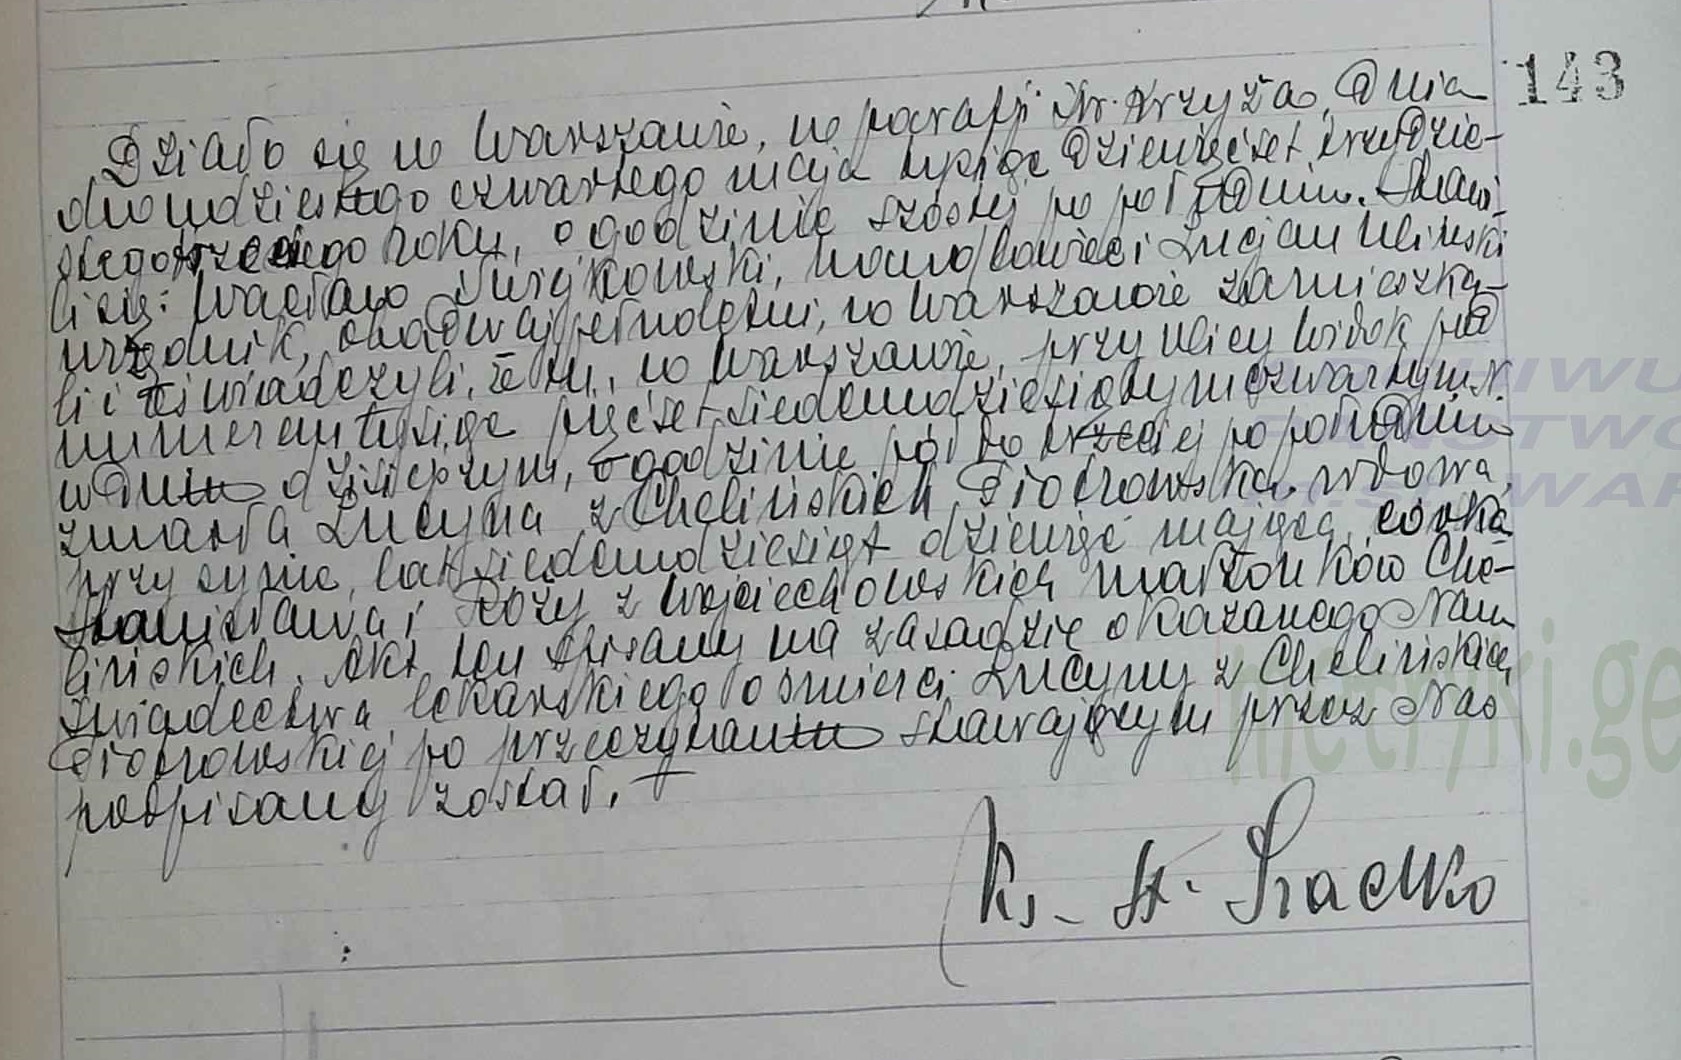 143
Działo się w Warszawie, w parafji Św. Krzyża, dnia
dwudziestego czwartego maja tysiąc dziewięćset trzydzie-
stego trzeciego roku, o godzinie szóstej po południu. Stawi-
li się: Wacław
urzędnik, obadwaj pełnoletni, w Warszawie zamieszka-
li i oświadczyli, że tu, w Warszawie, przy ulicy Widok pod
numerem tysiąc pięćset siedemdziesiątym czwartym,
w dniu dzisiejszym, o godzinie pół do trzeciej po południu
zmarła Lucyna z Chelińskich Piotrowska, wdowa,
przy synie, lat siedemdziesiąt dziewięć mająca, córka
Stanisława i Róży z Wojciechowskich małżonków Che-
lińskich. Akt ten spisany na zasadzie okazanego Nam
świadectwa lekarskiego o śmierci Lucyny z Chelińskich
Piotrowskiej po przeczytaniu stawającym przez Nas
podpisany został.
Ks. St.
metryki.ge